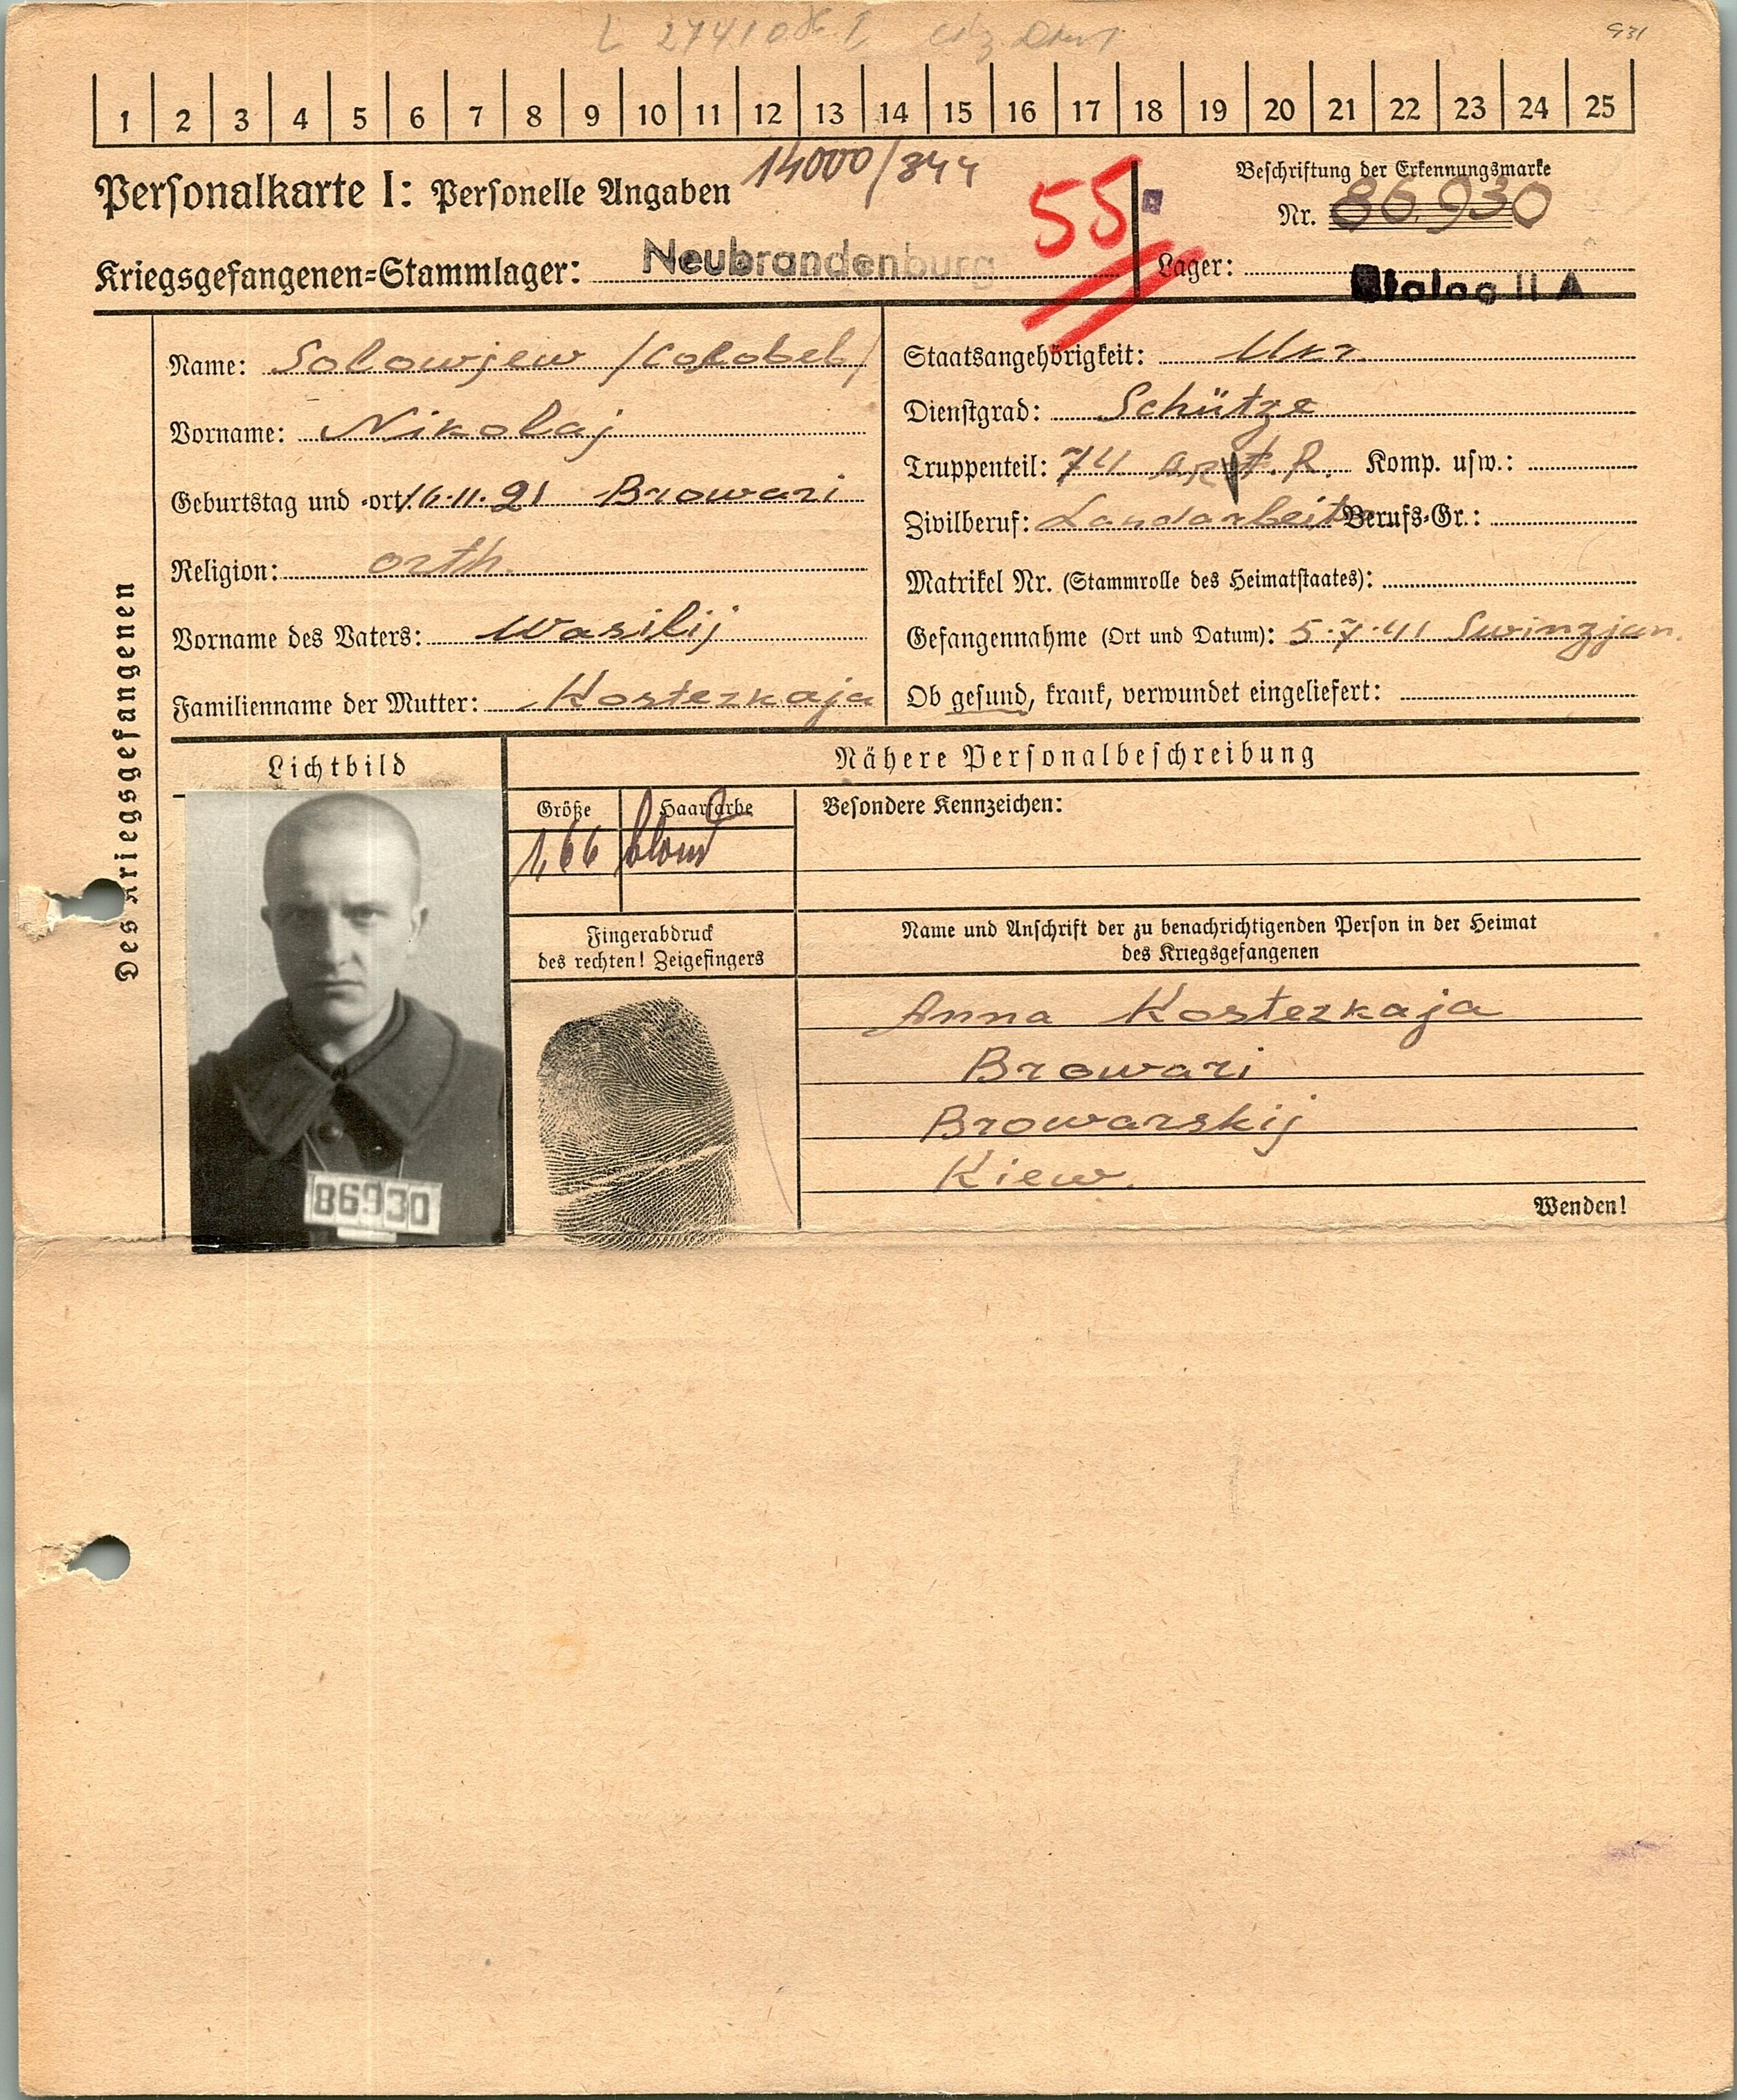 931
1 2 3 4 5 6 7 8 9 10 11 12 13 14 15 16 17 18 19 20 21 22 23 24 25
Personalkarte I: Personelle Angaben 14000/344
55
Beschriftung der Erkennungsmarke
Nr. 86.930
Kriegsgefangenen-Stammlager: Neubrandenburg
Lager: Stalag II A
Des Kriegsgefangenen
Name: Solowjew
Vorname: Nikolaj
Geburtstag und -ort: 16.11.21 Browari
Religion: orth.
Vorname des Vaters: Wasilij
Familienname der Mutter: Kostezkaja
Staatsangehörigkeit: Ukr.
Dienstgrad: Schütze
Truppenteil: 74 Art. R. Komp. usw.:
Zivilberuf: Landarbeiter Berufs-Gr.:
Matrikel Nr. (Stammrolle des Heimatstaates):
Gefangennahme (Ort und Datum): 5.7.41 Swinzjan.
Ob gesund, krank, verwundet eingeliefert:
Lichtbild
86930
Nähere Personalbeschreibung
Größe Haarfarbe
1,66 blond
Besondere Kennzeichen:
Fingerabdruck
des rechten! Zeigefingers
Name und Anschrift der zu benachrichtigenden Person in der Heimat
des Kriegsgefangenen
Anna Kostezkaja
Browari
Browarskij
Kiew.
Wenden!